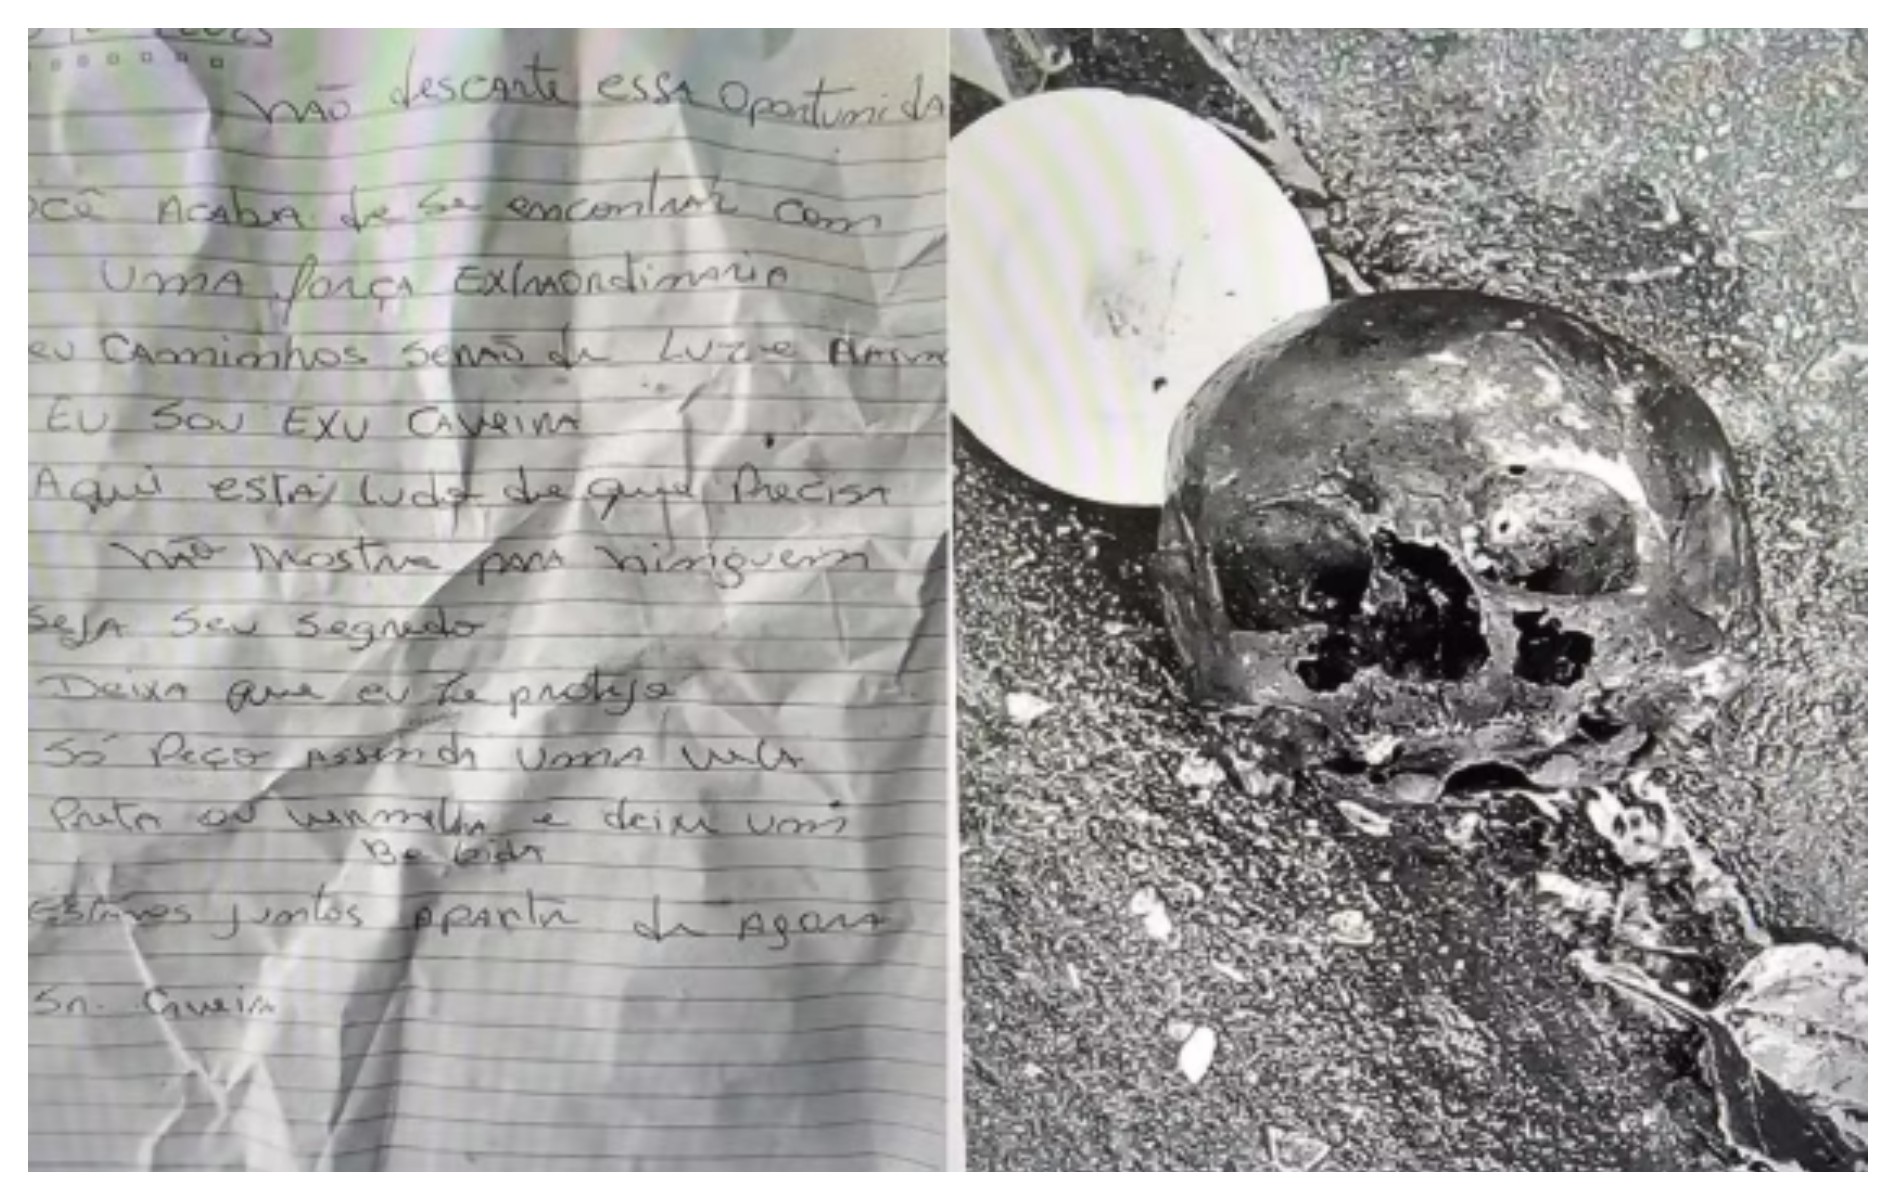 Não descarte essa Oportunida
ocê Acaba de se encontrar com
uma força Extraordinaria
eu Camminhos serão de Luz e
Eu sou Exu Caveira
Aqui está tudo de que Precisa
Não Mostre para ninguem
Seja seu segredo
Deixa que eu te proteja
Só Peço assenda uma vela
Preta ou vermelha e deixe uma
Bebida
Estamos juntos aparti de agora
Sr. Caveira